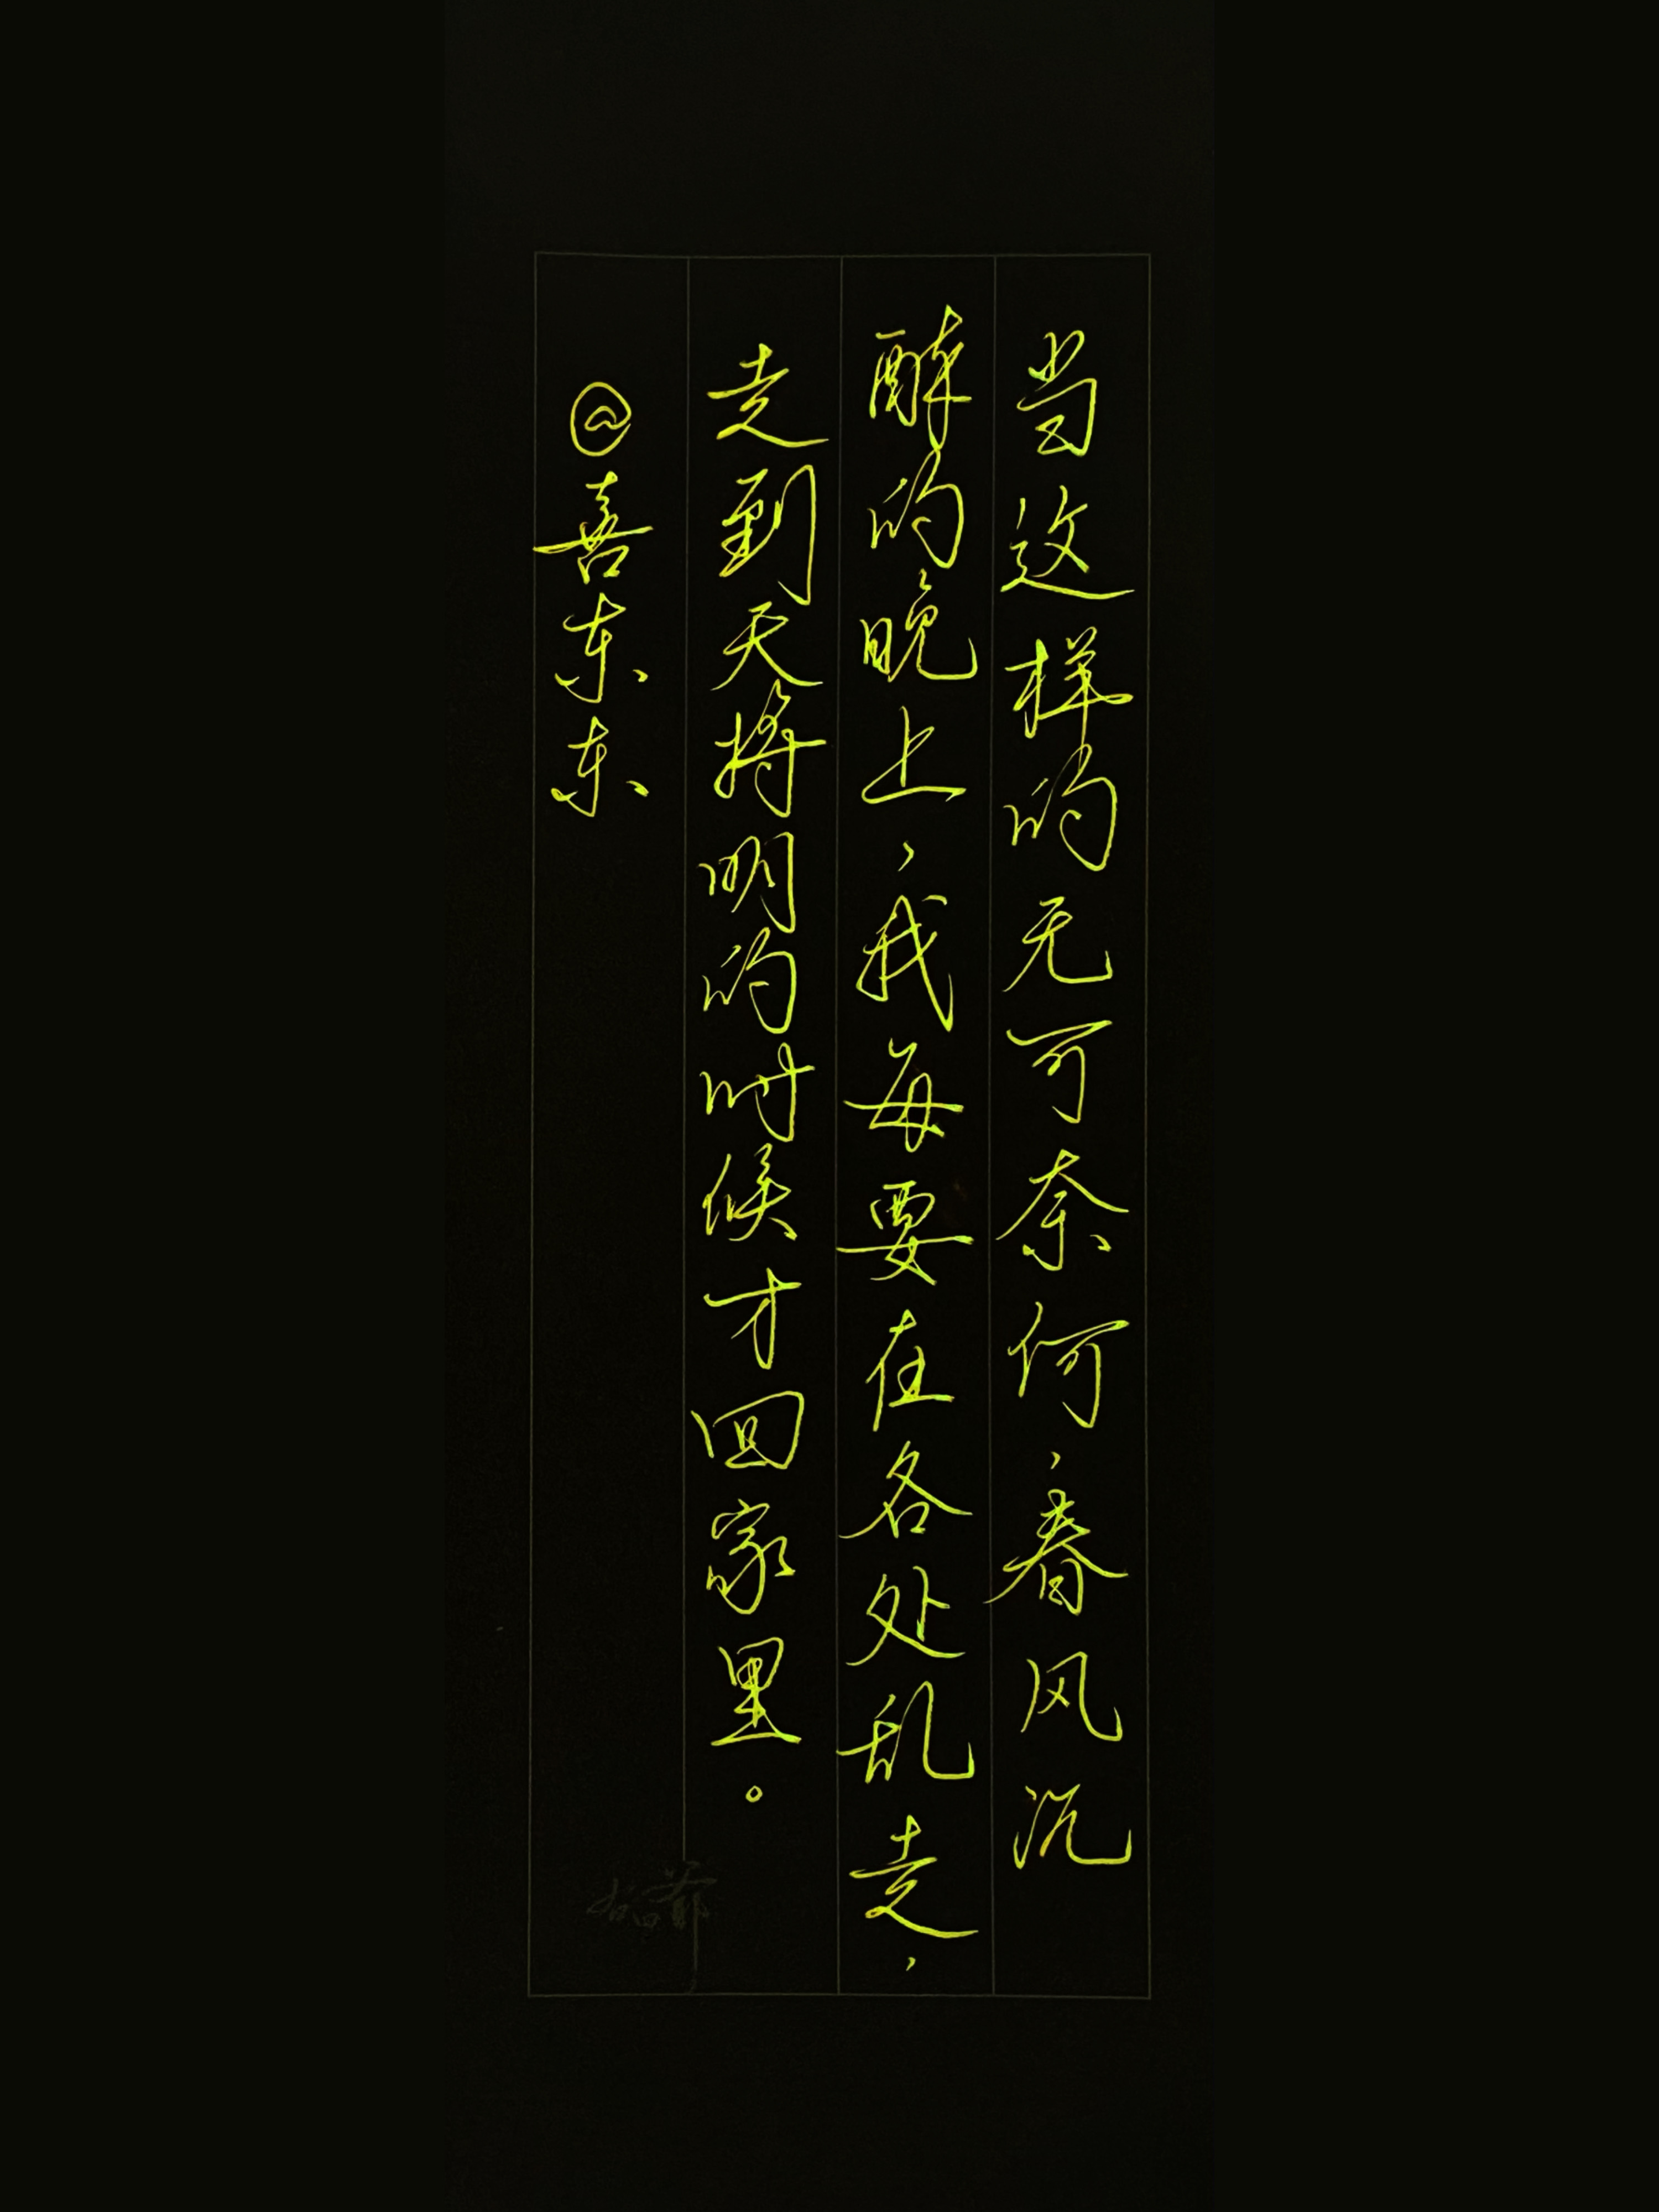 当这样的无可奈何，春风沉
醉的晚上，我每要在各处乱走，
走到天将明的时候才回家里。
@喜东东